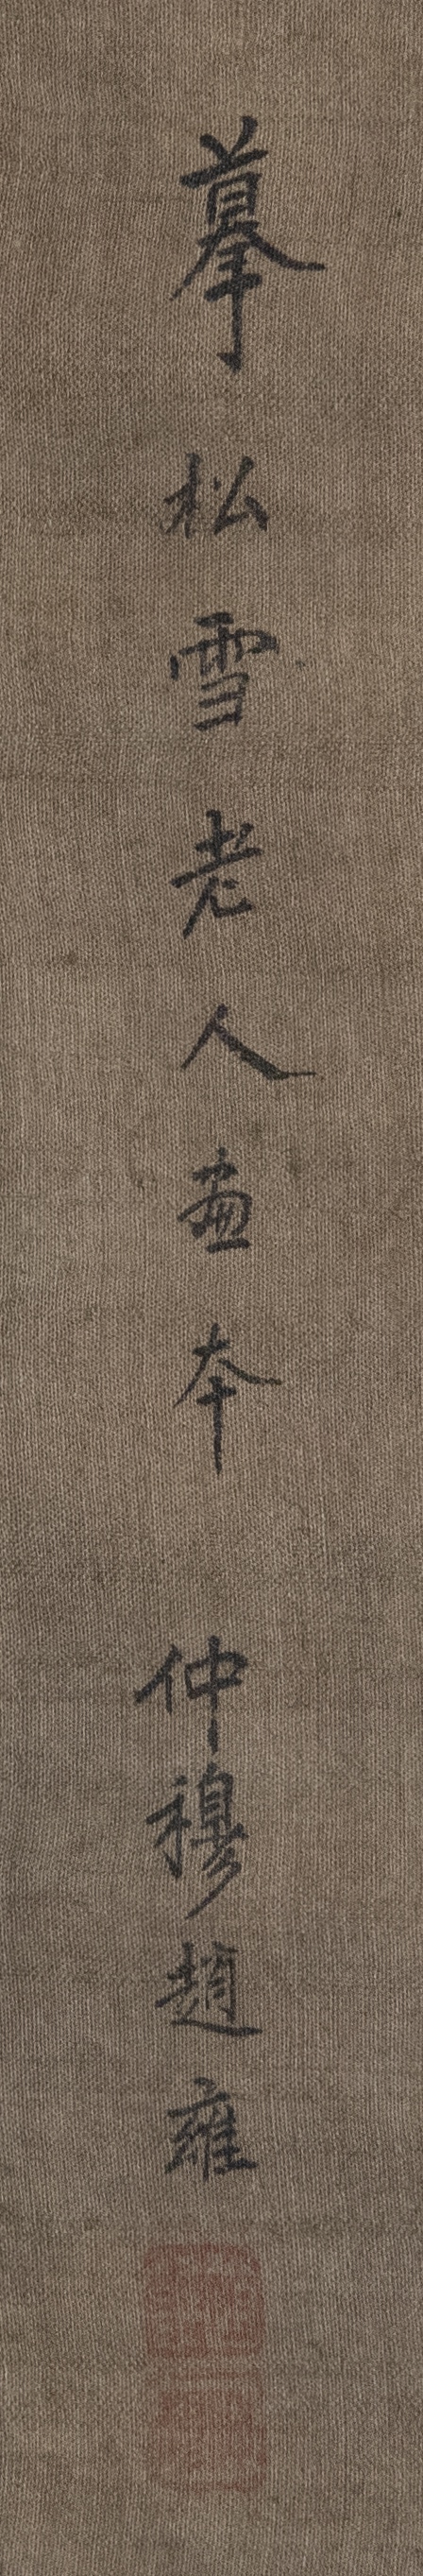 摹松雪老人畫本 仲穆趙雍